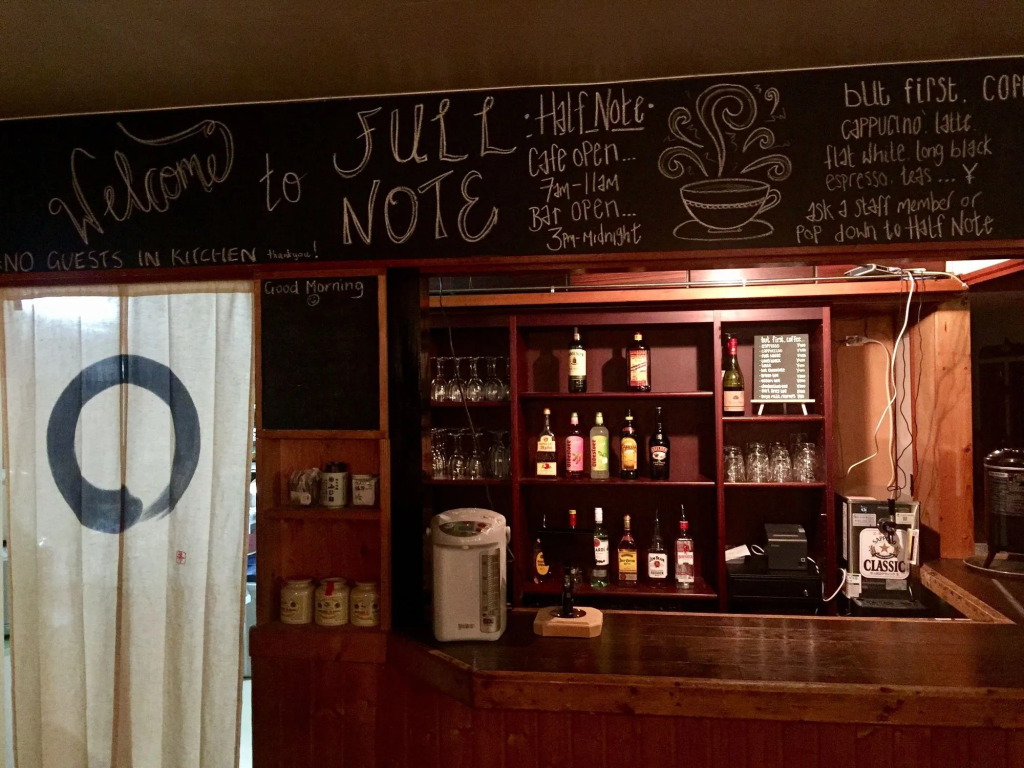 Welcome to FULL NOTE
NO GUESTS IN KITCHEN thankyou!
·Half Note·
Cafe open...
7am-11am
Bar open...
3pm-Midnight
but first, COF
CAPPUCINO, latte,
flat white, long black
espresso, teas .... ¥
ask a staff member or
pop down to Half Note
Good Morning
but first, coffee..
SAPPORO
CLASSIC